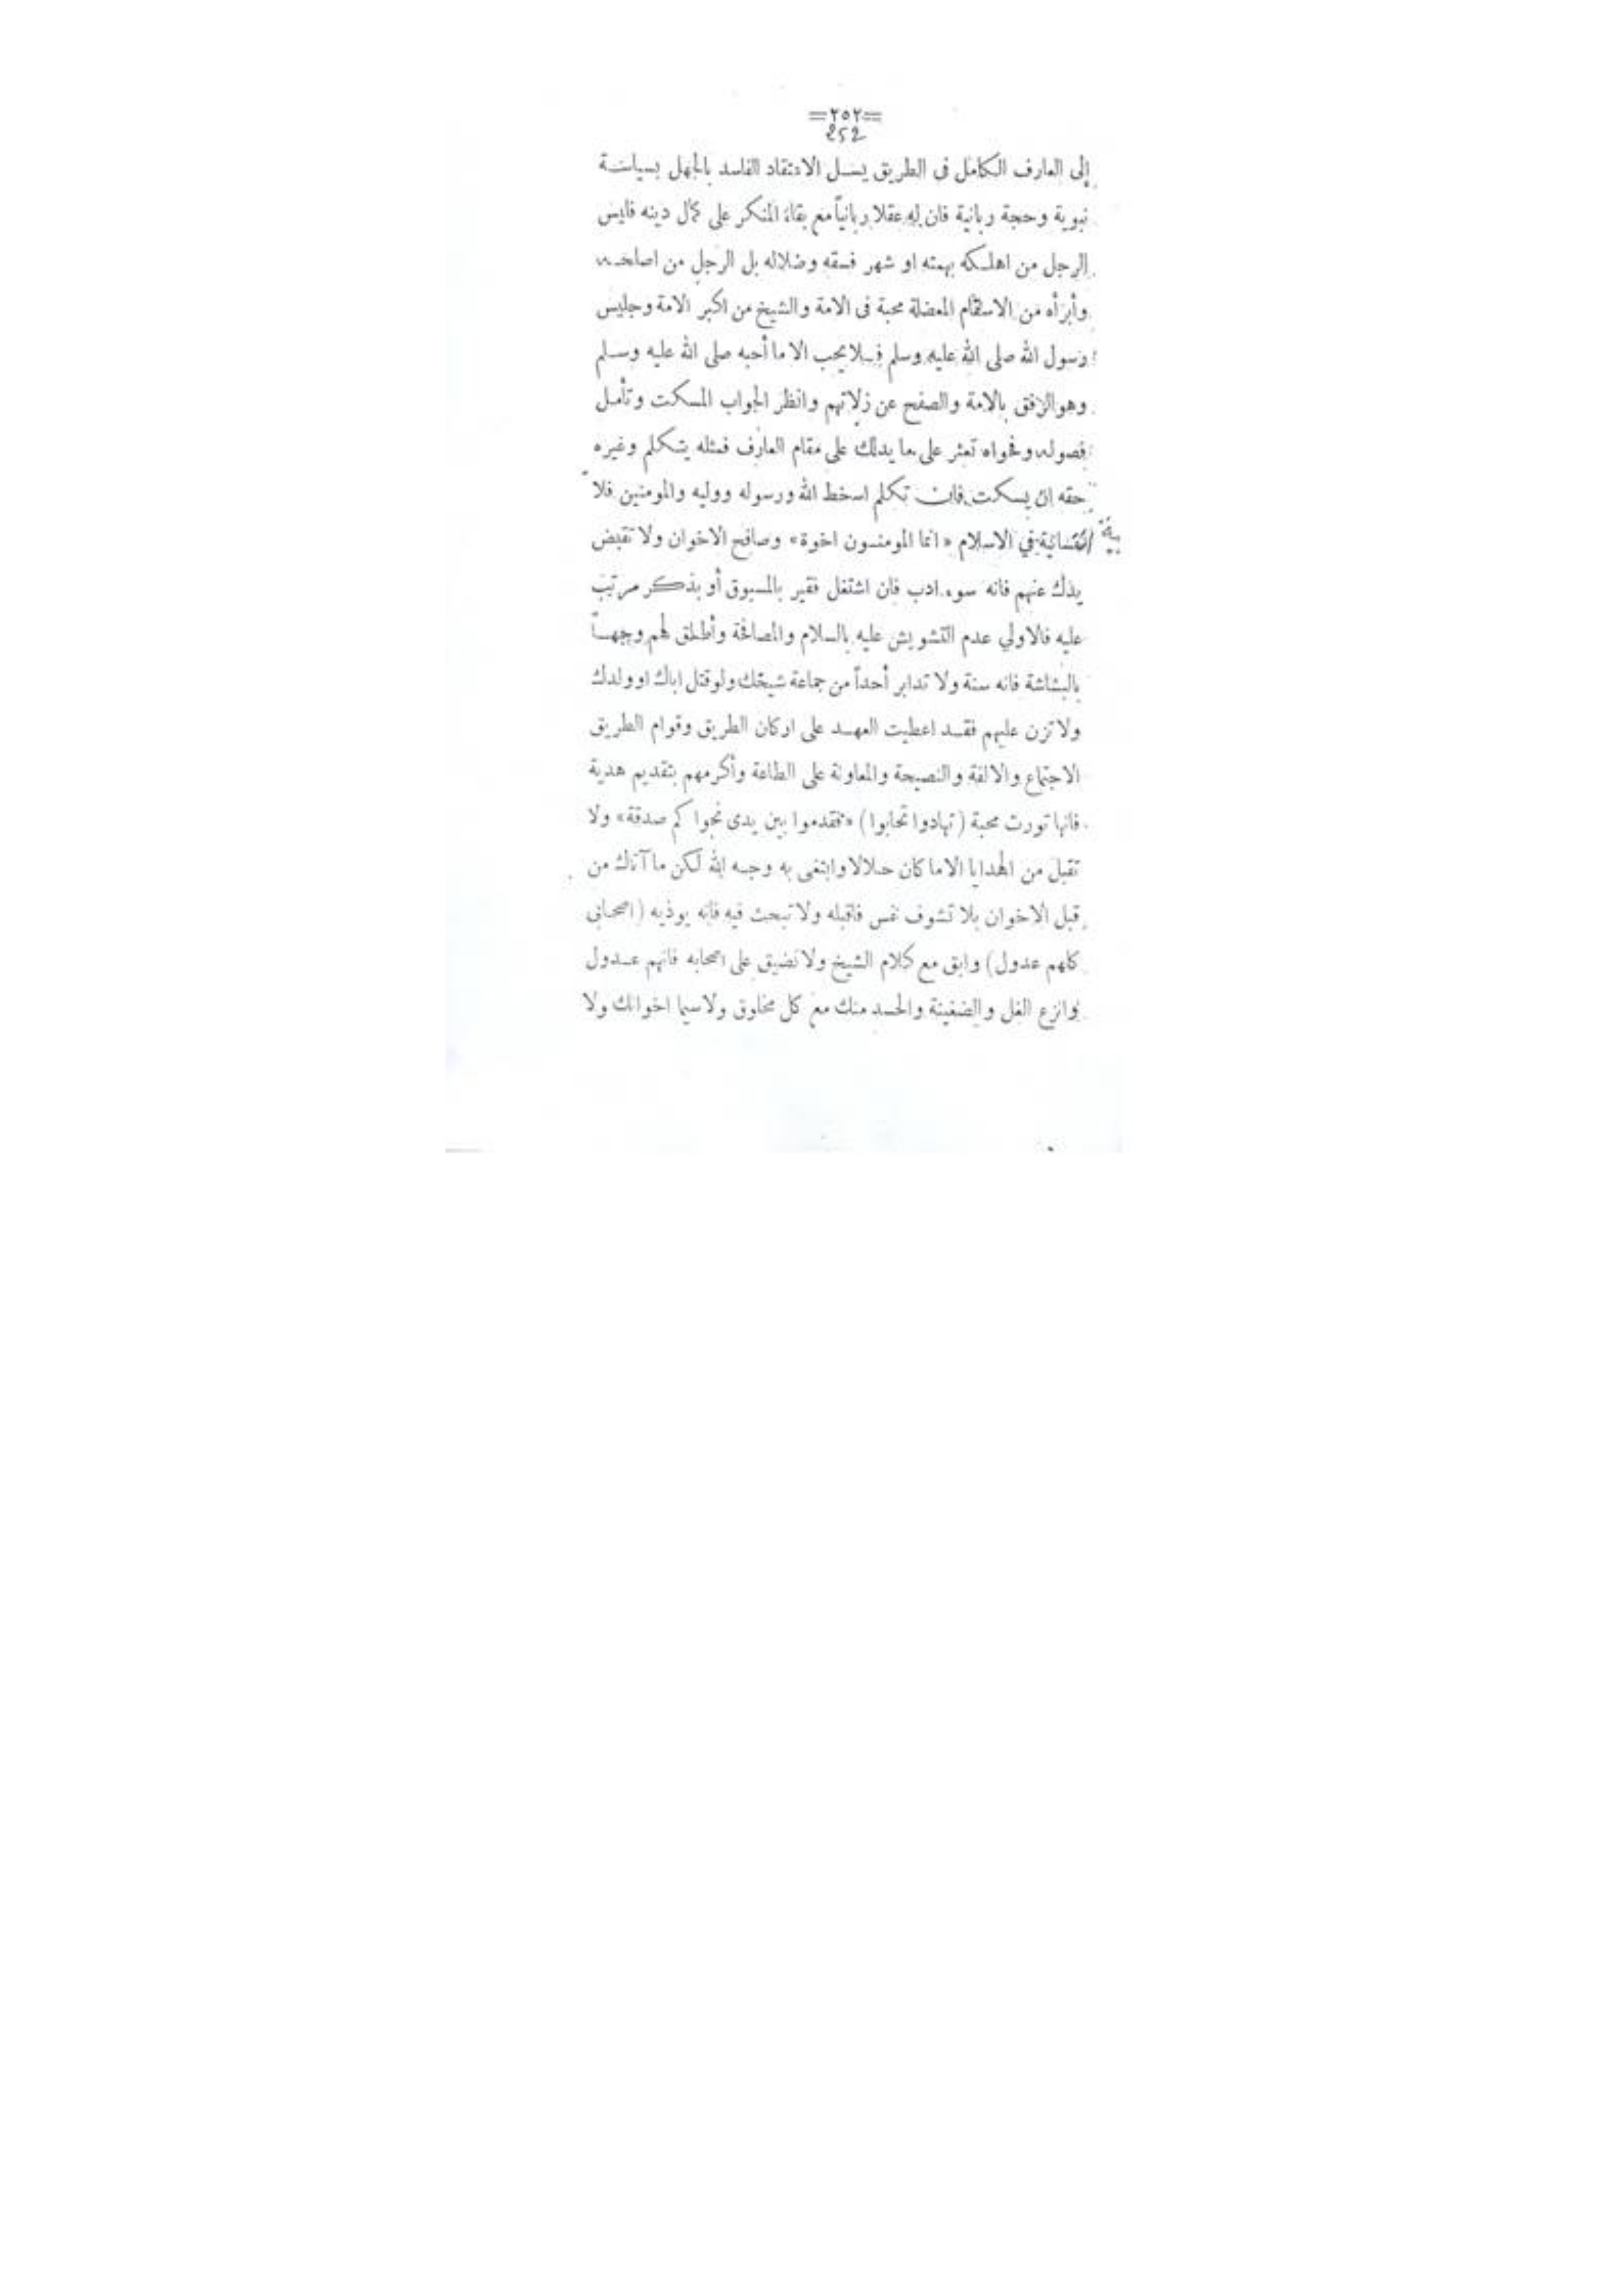 =٢٥٢=
252
إلى العارف الكامل فى الطريق يسل الاعتقاد الفاسد بالجهل بسياسة
نبوية وحجة ربانية فان له عقلا ربانياً مع بقاء المنكر على كمال دينه فليس
الرجل من اهلكه بهمته او شهر فسقه وضلاله بل الرجل من اصلحه
وأبرأه من الاسقام المعضلة محبة فى الامة والشيخ من اكبر الامة وجليس
رسول الله صلى الله عليه وسلم فلا يحب الا ما أحبه صلى الله عليه وسلم
وهو الرفق بالامة والصفح عن زلاتهم وانظر الجواب المسكت وتأمل
فصوله وفحواه تعثر على ما يدلك على مقام العارف فمثله يتكلم وغيره
حقه ان يسكت فان تكلم اسخط الله ورسوله ووليه والمومنين فلا
نفسانية في الاسلام «انما المومنون اخوة» وصافح الاخوان ولا تقبض
يدك عنهم فانه سوء ادب فان اشتغل فقير بالمسبوق أو بذكر مرتب
عليه فالاولي عدم التشويش عليه بالسلام والمصافحة وأطلق لهم وجهاً
بالبشاشة فانه سنة ولا تدابر أحداً من جماعة شيخك ولو قتل اباك او ولدك
ولا تزن عليهم فقد اعطيت العهد على اركان الطريق وقوام الطريق
الاجتماع والالفة والنصيحة والمعاونة على الطاعة وأكرمهم بتقديم هدية
فانها تورث محبة (تهادوا تحابوا) «فقدموا بين يدى نجواكم صدقة» ولا
تقبل من الهدايا الا ما كان حلالا وابتغى به وجه الله لكن ما آتاك من
قبل الاخوان بلا تشوف نفس فاقبله ولا تبحث فيه فانه يوذيه (اصحابى
كلهم عدول) وابق مع كلام الشيخ ولا تضيق على اصحابه فانهم عدول
وانزع الغل والضغينة والحسد منك مع كل مخلوق ولاسيما اخوانك ولا